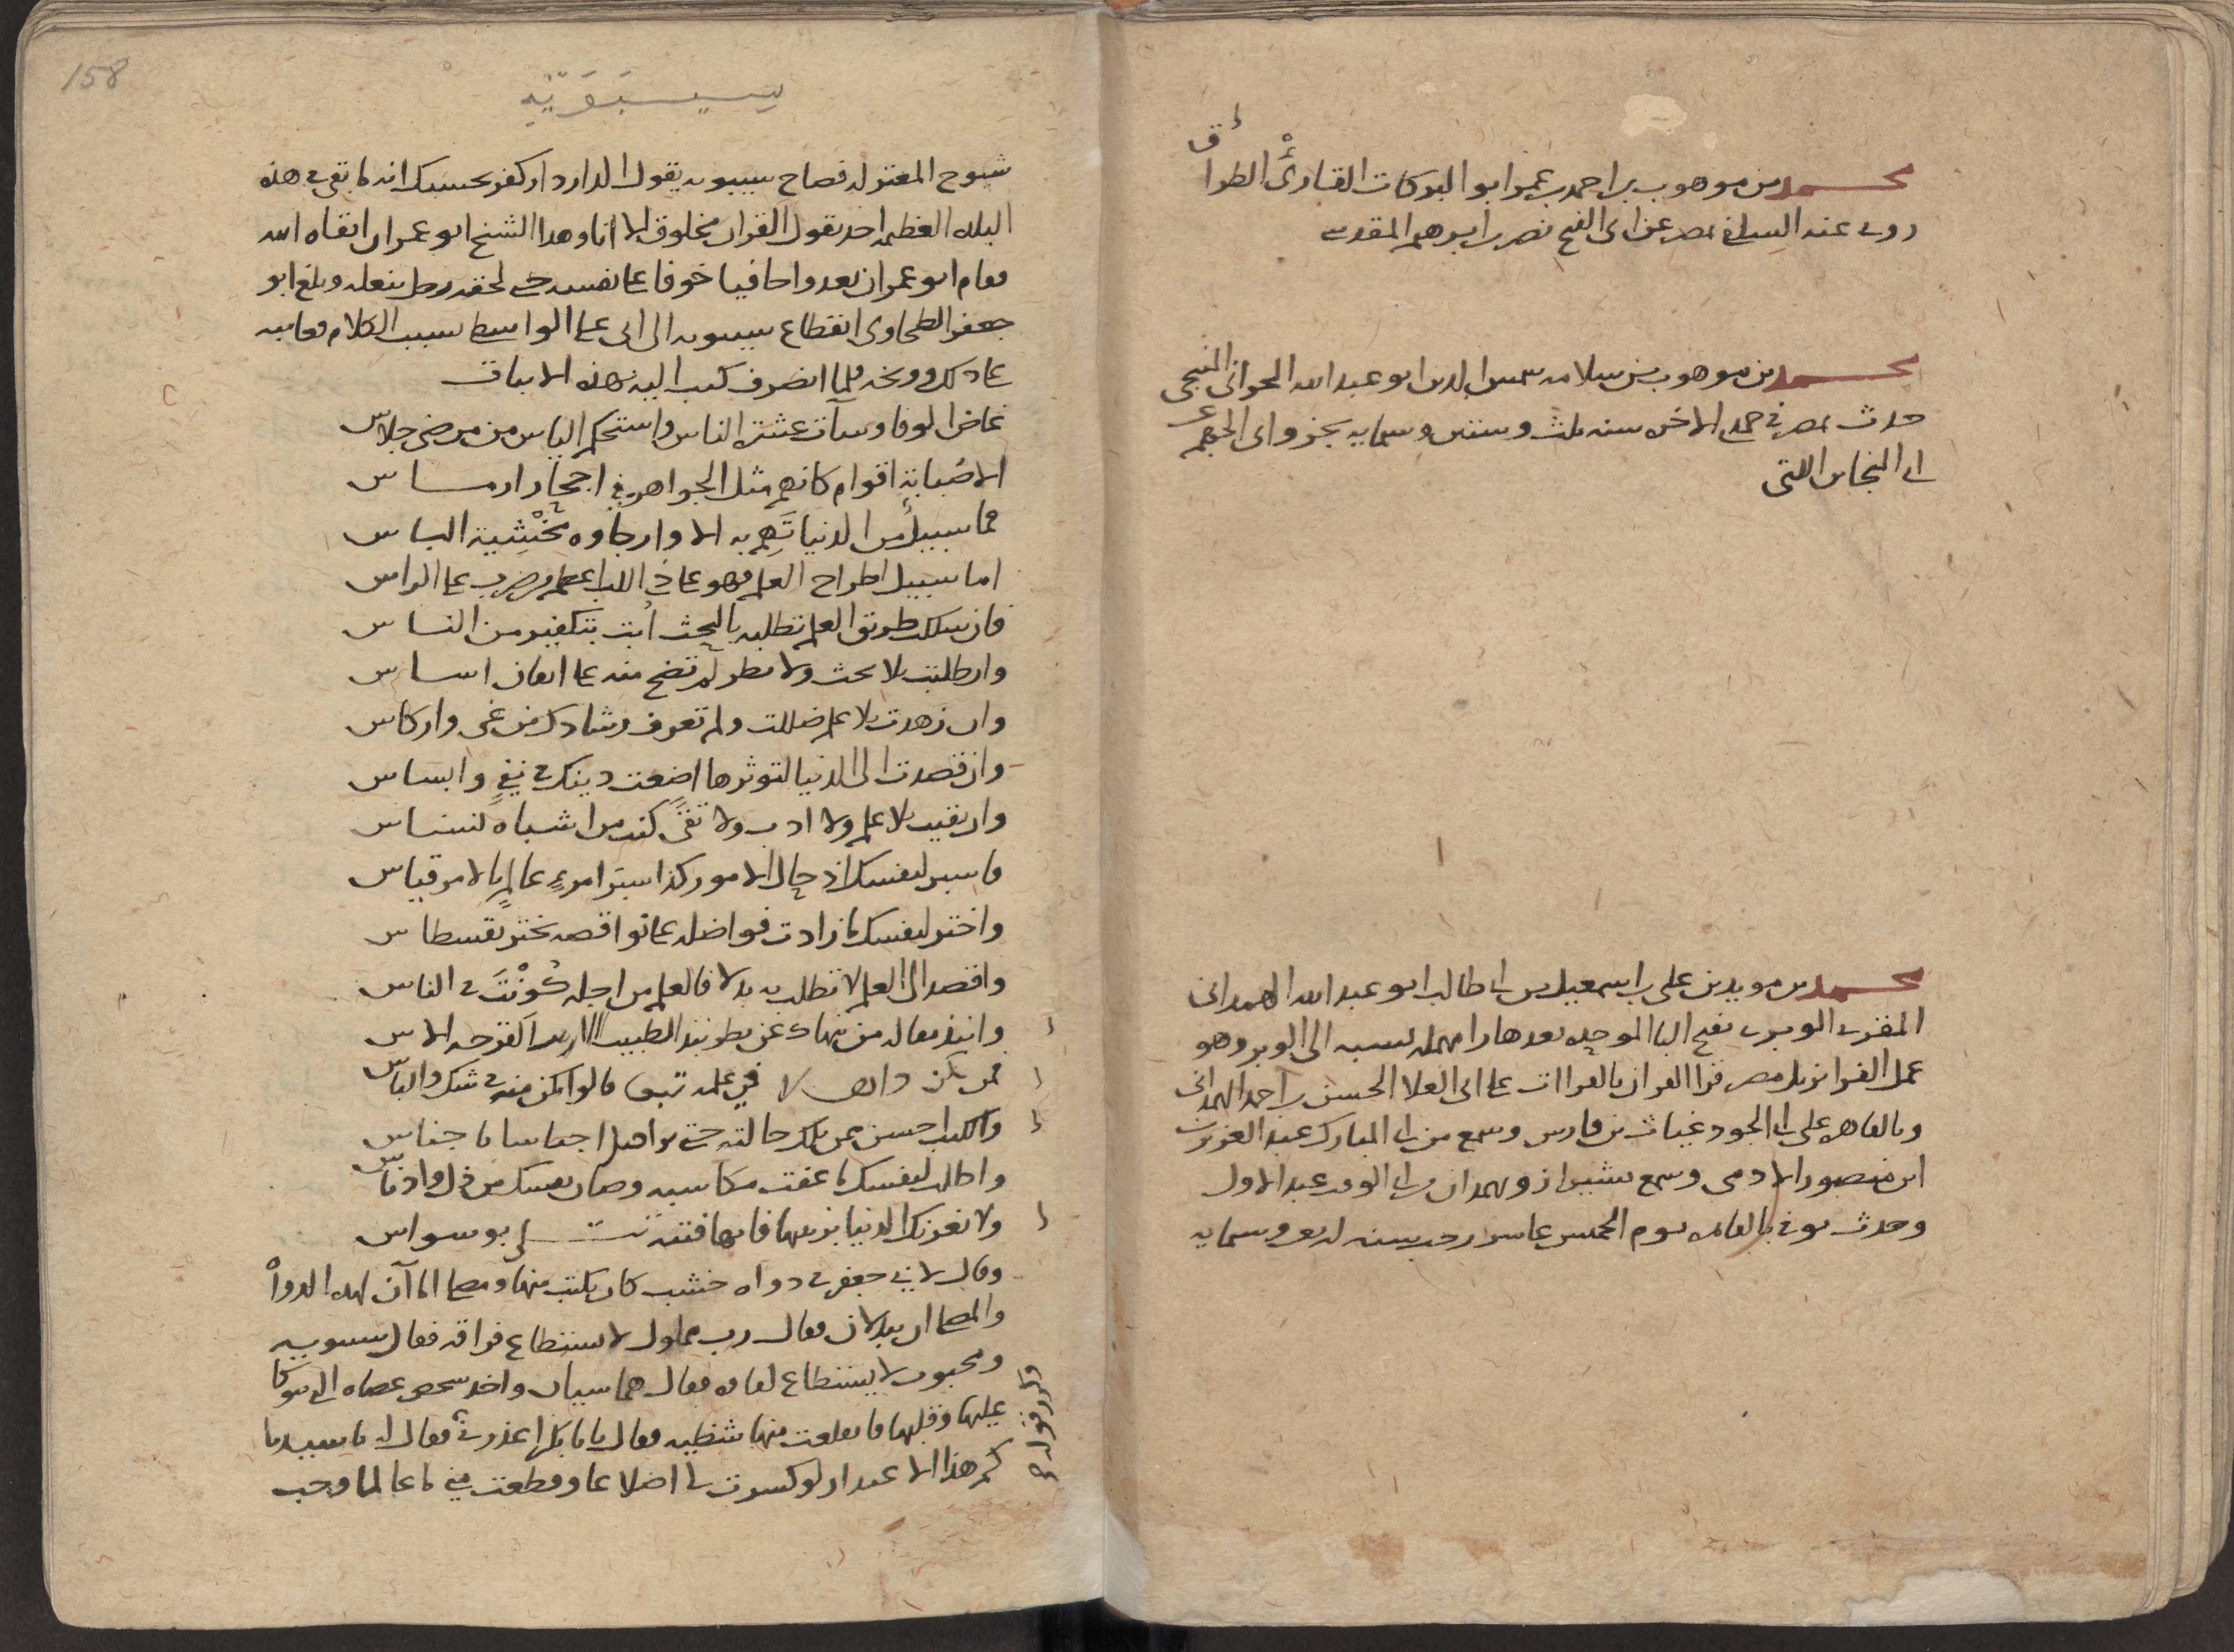 محمد بن موهوب بن احمد بن عمر ابو البركات القارئ الطرائق
روى عنه السلفى بمصر عن ابى الفتح نصر بن ابرهيم المقدسى
محمد بن موهوب بن سلامه شمس الدين ابو عبد الله الحرانى المنبجى
حدث بمصر فى جمدى الاخره سنه ثلث وستين وستمايه بجزو ابى الجهم
على ابن النجا بن اللتى
محمد بن مويد بن على بن اسمعيل بن ابى طالب ابو عبد الله الهمدانى
المقرى الوبرى بفتح البا الموحده بعدها را مهمله نسبه الى الوبر وهو
عمل الفرا نزيل مصر قرا القران بالقراات على ابى العلا الحسن بن احمد الهمدانى
وبالقاهره على ابى الجود غياث بن فارس وسمع من ابى المبارك عبد العزيز
ابن منصور الادمى وسمع بشيراز وبهمدان من ابى الوقت عبد الاول
وحدث توفى بالقاهره يوم الخميس عاشر رجب سنه اربع وستمايه
158
سِيبَوَيْهِ
شيوخ المعتزله فصاح سيبويه يقول الدار دار كفر حسبك انه ما بقى فى هذه
البلده العظيمه احد يقول القران مخلوق الا انا وهذا الشيخ ابو عمران ابقاه الله
فقام ابو عمران يعدوا حافيا خوفا على نفسه حتى لحقه رجل بنعله وبلغ ابو
جعفر الطحاوى انقطاع سيبويه الى ابى على الواسطى بسبب الكلام فعاتبه
على ذلك ووبخه فلما انصرف كتب اليه بهذه الابيات
غاض الوفا وسآت عشرة الناس واستحكم الياس من مرضى جلاس
الا صُبابة اقوام كانهم مثل الجواهر فى احجار ارماس
فما سبيل من الدنيا تَهِم به الا وارجاوه مَخْشية الباس
اما سبيل اطراح العلم فهو على ذى اللب اعظم من ضرب على الراس
فان سلكت طريق العلم تطلبه بالبحث أبت بتكفير من الناس
وان طلبت بلا بحث ولا نظر لم تضح منه على ايقان اساس
وان زهدت بلا علم ضللت ولم تعرف رشادك من غى واركاس
وان قصدت الى الدنيا لتوثرها اضعت دينك فى غىٍ وابساس
وان بقيت بلا علم ولا ادب ولا تقىً كنت من اشباه نسناس
فاسبر لنفسك اذ جال الامور كذا سَبَر امرءٍ عالمٍ بالامر قياس
واختر لنفسك ما زادت فواضله على نواقصه تختر بقسطاس
واقصد الى العلم لا تطلب به بدلا فالعلم من اجله كُوّنتَ فى الناس
وانبذ مقاله من ينهاك عن نظر نبذ الطبيب القرحه الاس
فمن يكن فى علمه قالوا تمكن منه شك والباس
والكلب احسن ممن تلك حالته حتى يواصل اجناسا باجناس
واطلب لنفسك ما عفت مكاسبه وصان نفسك من ذل وادناس
ولا تغرنك الدنيا بزينتها فانها فتنه بوسواس
وقال لابى جعفر فى دواه خشب كان يكتب منها ومصلى اما آن لهذه الدواة
والمصلى ان يبدلان فقال رب مملول لا يستطاع فراقه فقال سيبويه
ومحبوب لا يستطاع لقاه فقال هما سيان واخذ شخص عصاه التى يتوكا
عليها وقلبها فانقلعت منها شظيه فقال يا ابا بكر اعذرنى فقال له يا سيدنا
كم هذا الاعتذار لو كسرت لى اضلاعا وقطعت منى ما عا لما وجب